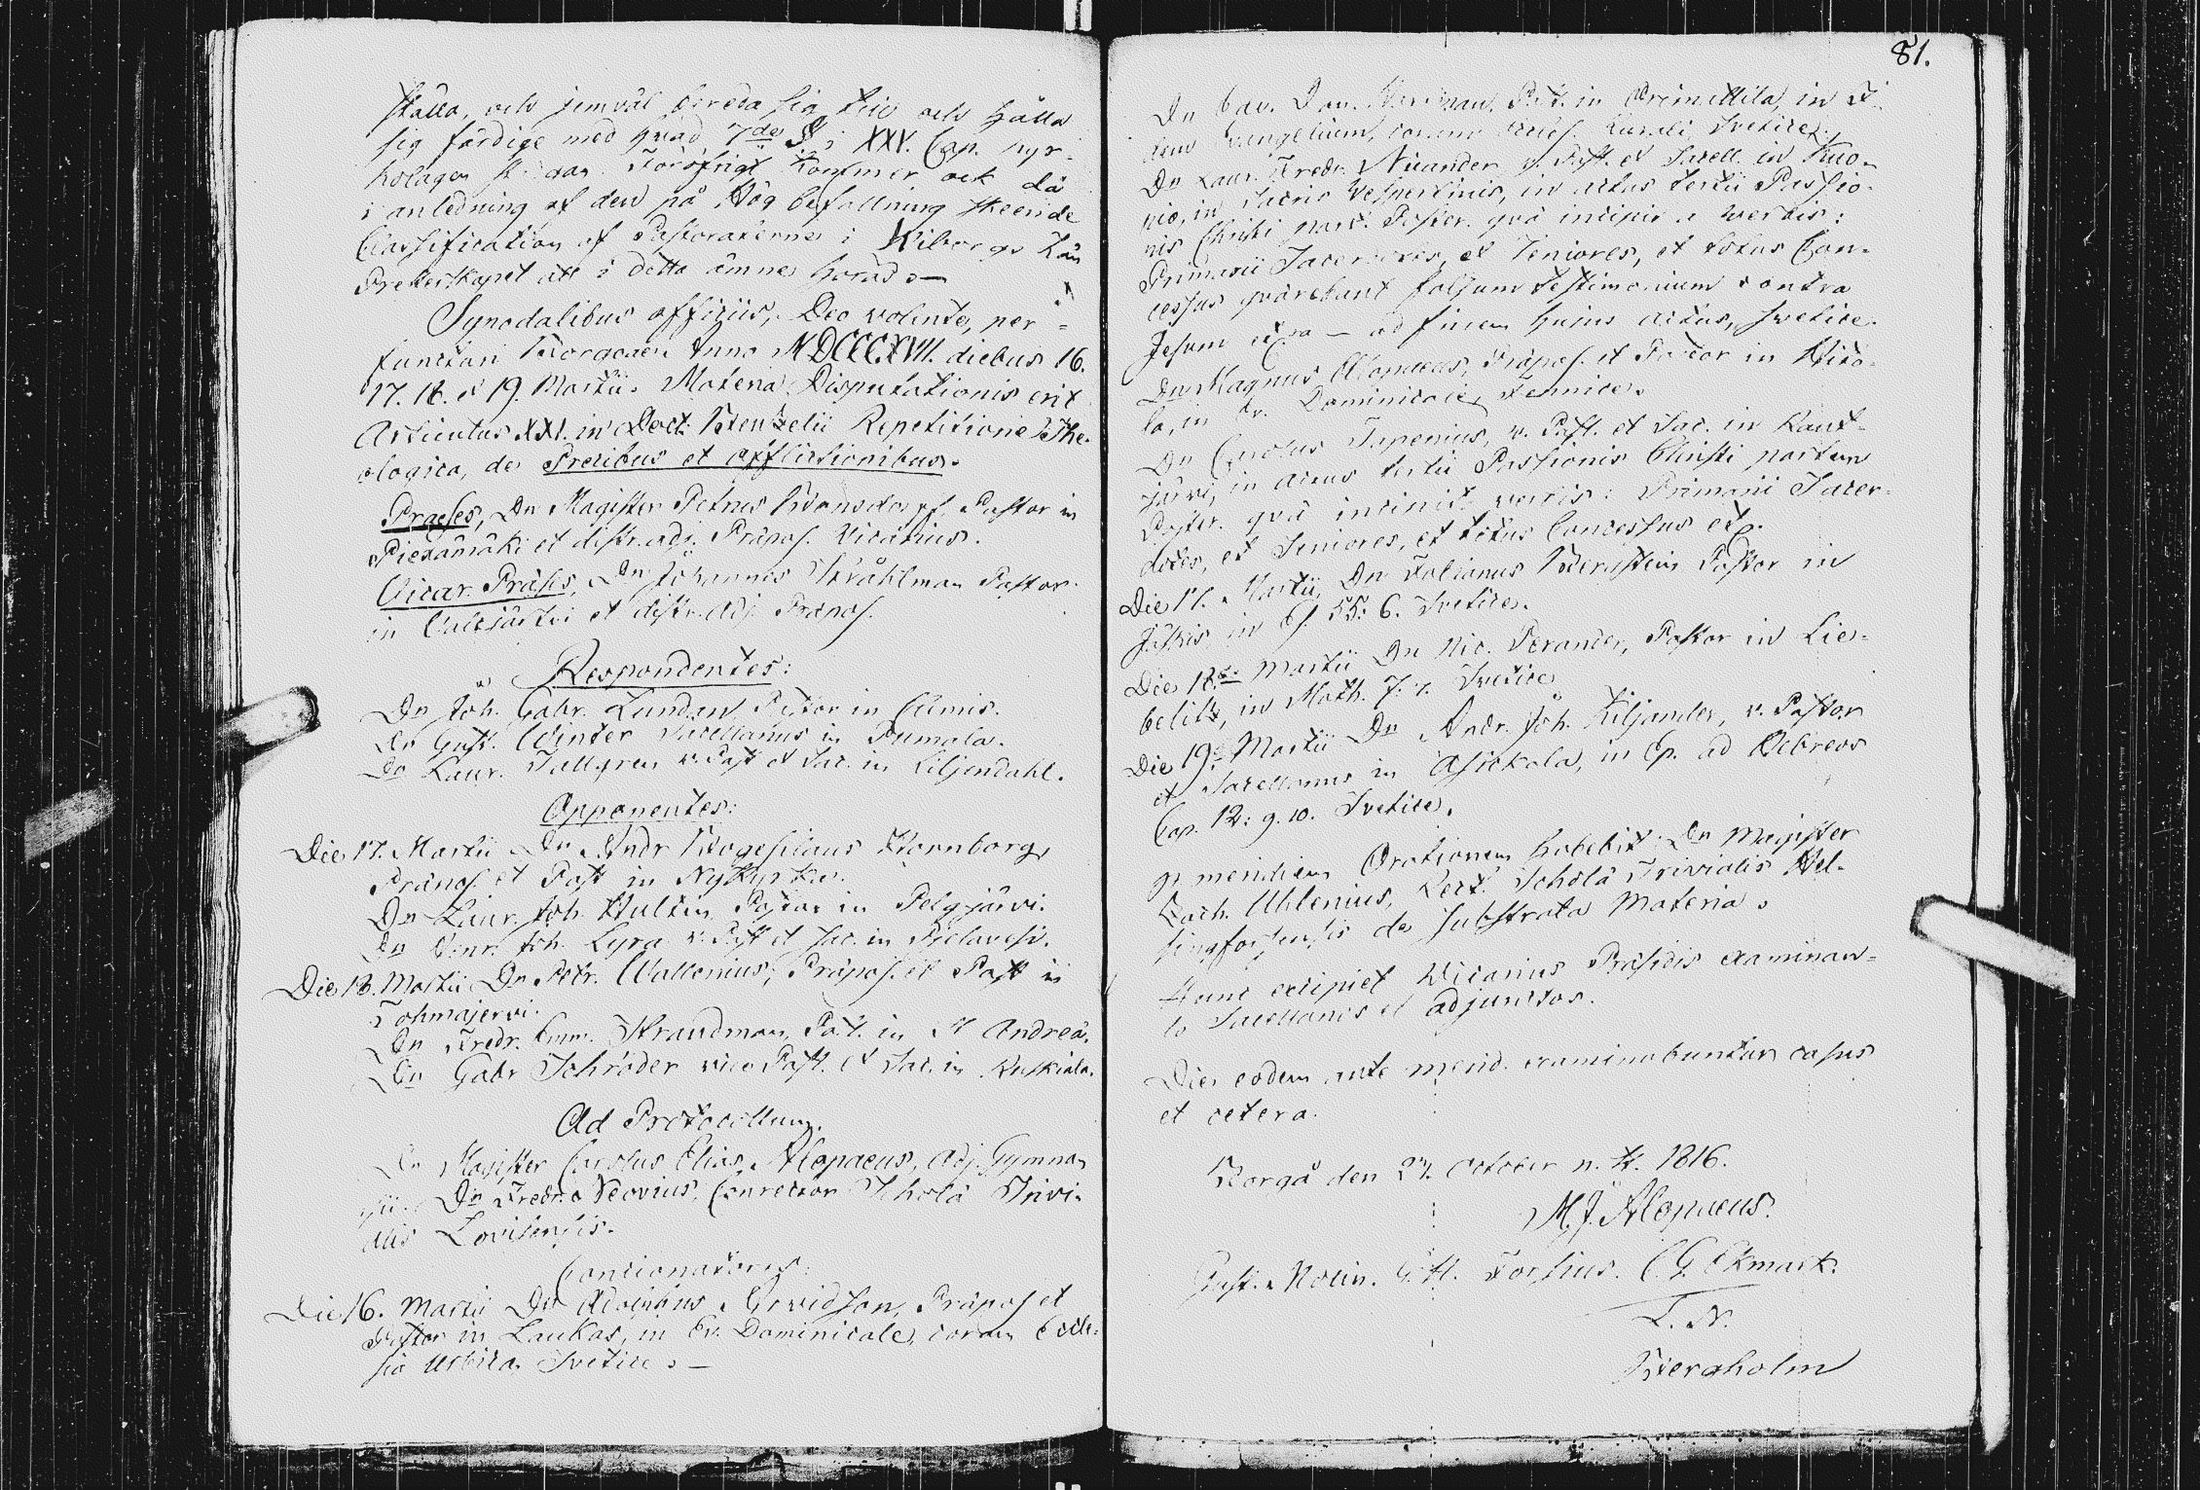 ställa, och jemväl bereda sig till och hålla
sig färdige med hvad 7de § i XXV. Cap. Kyr-
kolagen Föröfrigt kommer ock då
i anledning af den på Hög befallning skeende
Classification af Pastoraterne i Wiborgs Län
Presterskapet att i detta ämne höras.—
Synodalibus officiis, Deo volente, per-
functuri Borgoae Anno MDCCCXVII. diebus 16.
17. 18. et 19. Martii. Materia Disputationis erit
Articulus XXI. in Doct. Benzelii Repetitione The-
ologica, de Precibus et afflictionibus.
Praeses, Dn Magister Petrus Kransdorpf. Pastor in
Piexämäki et distr. adj. Präpos. Vicarius.
Vicar. Präses, Dn Johannes Stråhlman Pastor
in Valkjärvi et distr. adj. Präpos.
Respondentes:
Dn Joh. Gabr. Lundan Pastor in Elimä.
Dn Gust. Winter Sacellanus in Pumala.
Dn Laur. Tallgren v. Past et Sac. in Liljendahl.
Opponentes:
Die 17. Martii Dn Andr Bogeslaus Kornborg,
Präpos. et Past in Nykyrka.
Dn Laur. Joh. Hultin Pastor in Pelgjärvi.
Dn Henr. Joh. Lyra v. Past et Sac. in Pielavesi.
Die 18. Martii Dn Petr. Wallenius, Präpos. et Past in
Tohmajervi.
Dn Fredr. Emm. Strandman, Past. in St Andreä.
Dn Gabr Schröder vice Past. et Sac. in Ruskiala.
Ad Protocollum.
Dn Magister Carolus Elias Alopaeus, Adj. Gymna-
sii. Dn Fredr. Neovius, Conrector Scholä Trivi-
alis Lovisensis.
Concionatores:
Die 16. Martii Dn Adolphus Arvidson, Präpos et
Pastor in Laukas, in Ev. Dominicale, coram Eccle-
sia Urbica Svetice.—
81.
Dn Past. in Artmettila, in
Evangelium, coram Eccles. Rurali, Svetice.
Dn Laur. Fredr. Nicander v. Past. et Sacell. in Kuo-
pio, in Sacris Vespertinis, in actus tertii Passio-
nis Christi part. Poster. quä incipit a verbis:
Primarii Sacerdotes, et Seniores, et totus Con-
cessus quärebant falsum testimonium contra
Jesum cetra — ad finem hujus actus, Svetice.
Dn Magnus Alopaeus, Präpos. et Pastor in Hito-
la, in Ev. Dominicale, Fennice.
Dn Carolus Tapenius, v. Past. et Sac. in Kaut-
järvi, in actus tertii Passionis Christi partem
Poster. quä incipit verbis: Primarii Sacer-
dotes, et Seniores, et totus Concessus etc.
Die 17. Martii, Dn Fabianus Bernstein Pastor in
Jäskis, in Es. 55: 6. Svetice.
Die 18de Martii Dn Nic. Perander, Pastor in Lie-
belitz, in Math. 7: 7. Svetice
Die 19de Martii Dn Andr. Joh. Kiljander, v. Pastor
et Sacellanus in Asickala, in Ep. ad Hebreos
Cap. 12: 9. 10. Svetice.
meridiem Orationem habebit Dn Magister
Zach. Uhlenius, Rect. Scholä Trivialis Hel-
singforsensis de substrata Materia.
Hanc excipiet Vicarius Präsidis examinan-
do Sacellanos et adjunctos.
Die eodem ante merid. examinabuntur casus
et cetera.
Borgå den 27. October n. st. 1816.
M. J. Alopaeus.
Gust. Molin. G. H. Forsius. C. G. Ekmark.
L. N.
Bergholm